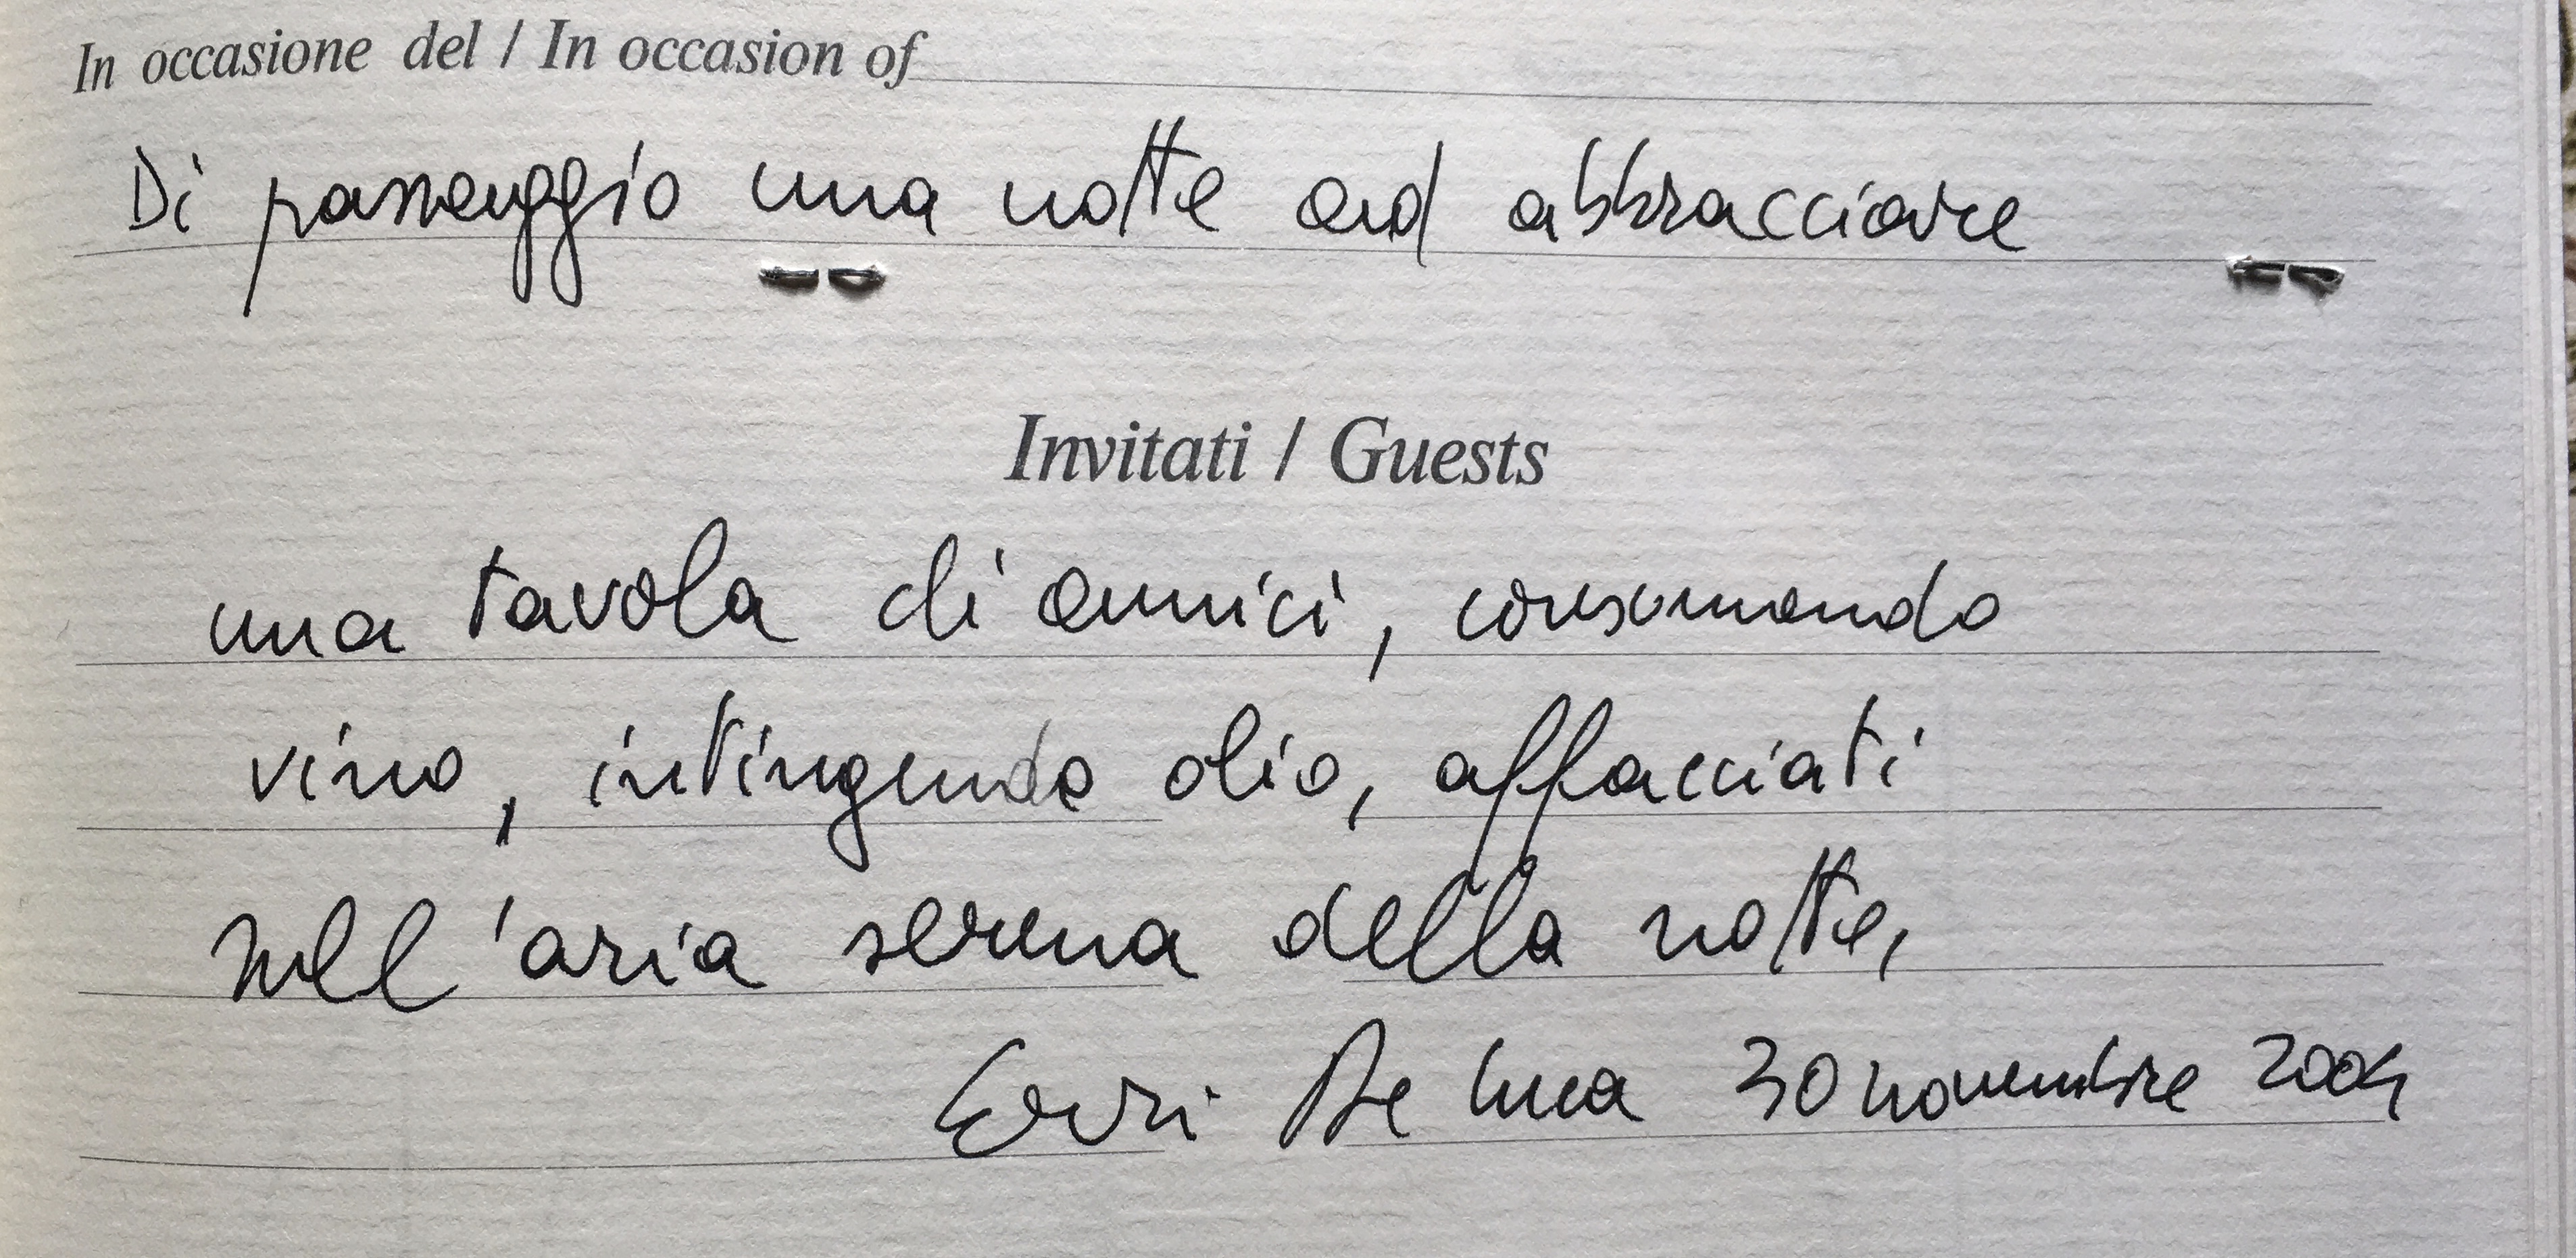 In occasione del / In occasion of
Di passeggio una notte ad abbracciare
Invitati / Guests
una tavola di amici, consumando
vino, intingendo olio, affacciati
nell'aria serena della notte,
Erri De Luca 30 novembre 2004